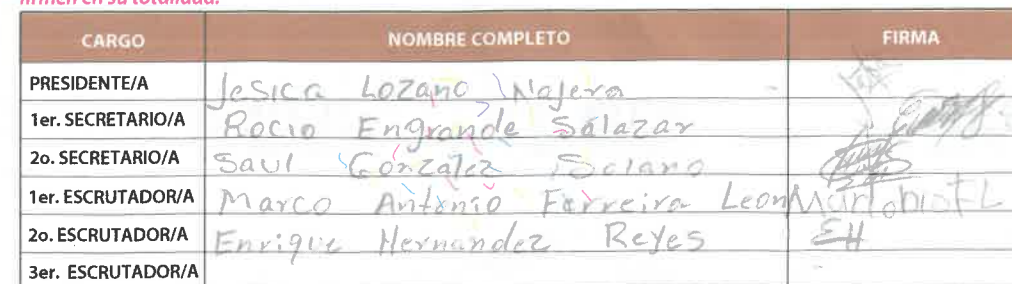 firmen en su totalidad.
CARGO NOMBRE COMPLETO FIRMA
PRESIDENTE/A Jesica Lozano Najera
1er. SECRETARIO/A Rocio Engrande Salazar
2o. SECRETARIO/A Saul González Solano
1er. ESCRUTADOR/A Marco Antonio Ferreira Leon
2o. ESCRUTADOR/A Enrique Hernandez Reyes EH
3er. ESCRUTADOR/A